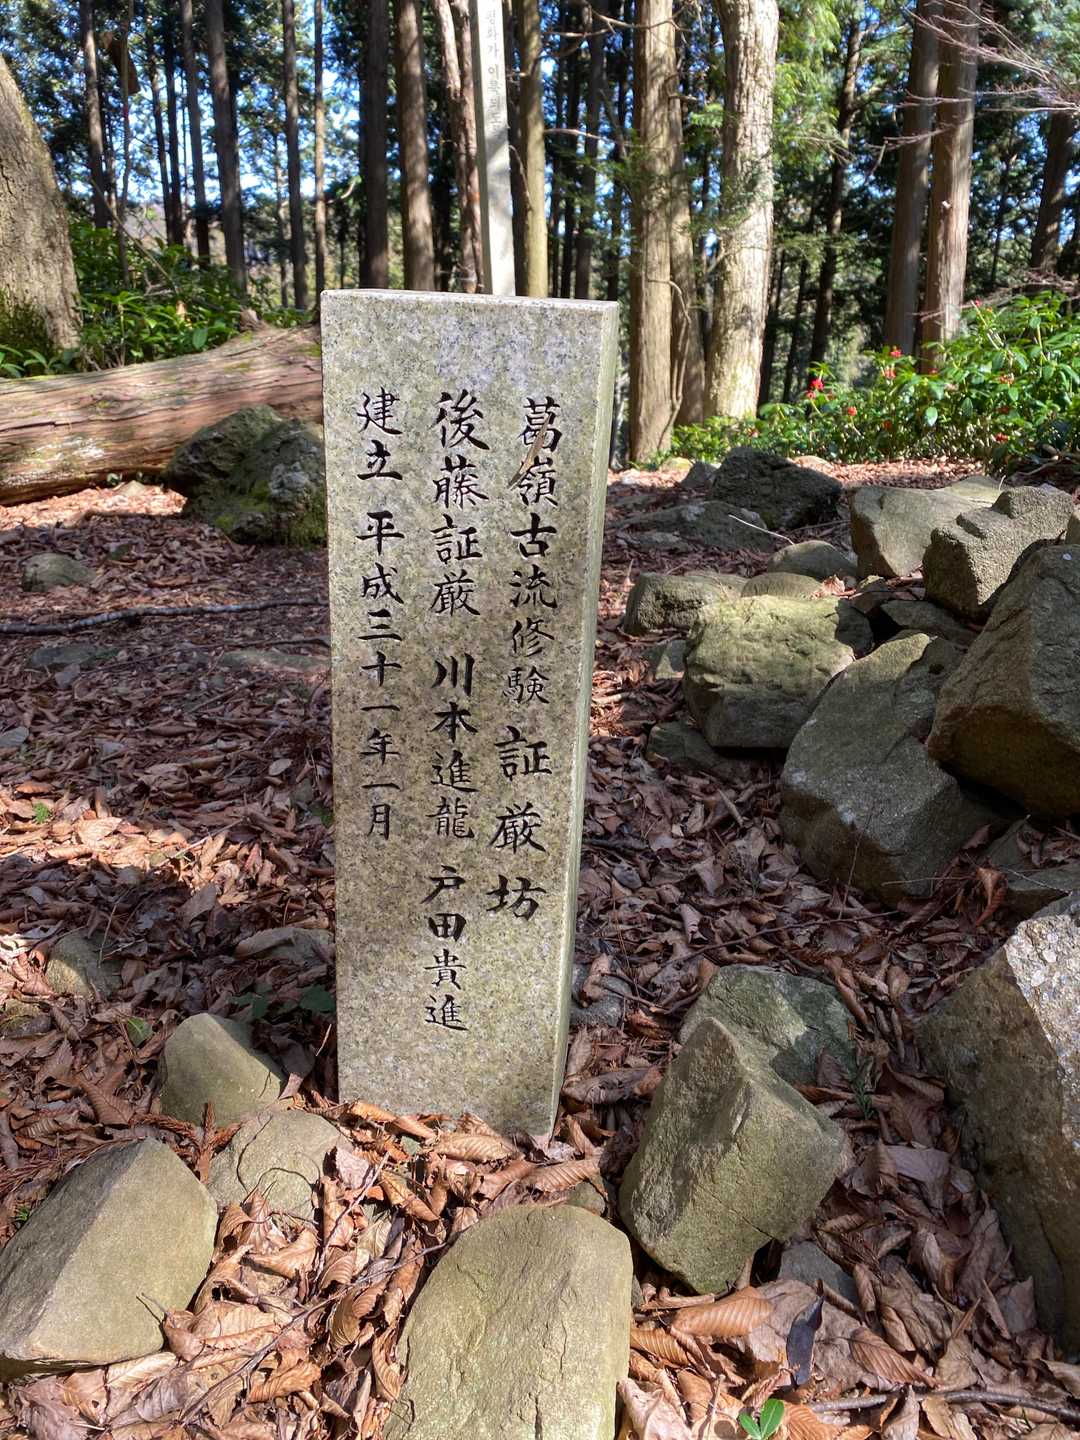 葛嶺古流修験 証厳坊
後藤証厳 川本進龍 戸田貴進
建立 平成三十一年一月
평화가 이룩되도